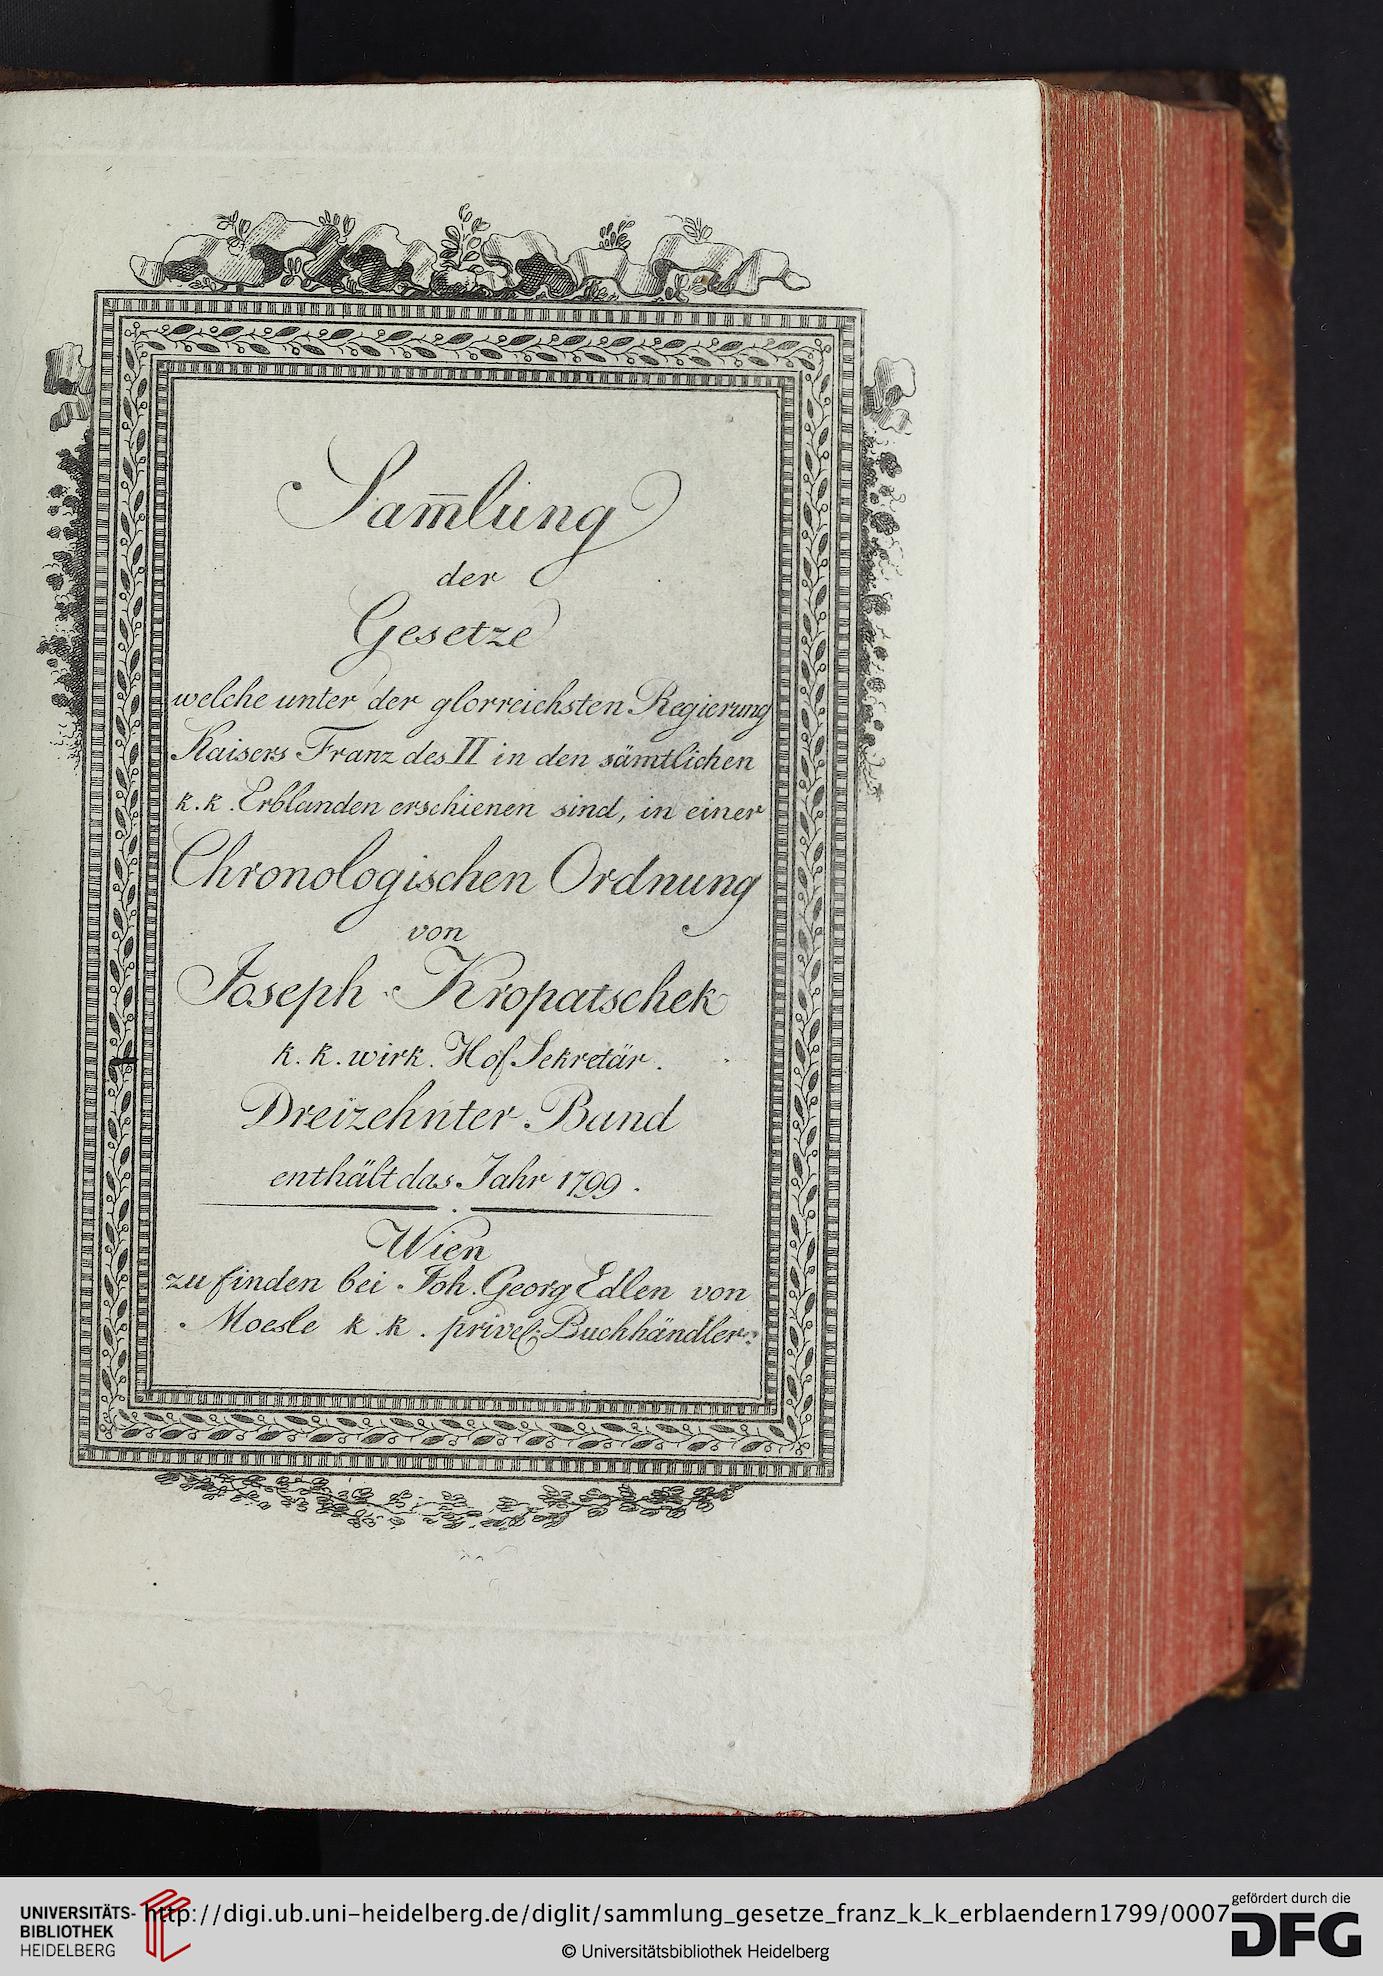 Sam̅lung
der
Gesetze
welche unter der glorreichsten Regierung
Kaisers Franz des II in den sämtlichen
k. k. Erblanden erschienen sind, in einer
Chronologischen Ordnung
von
Joseph Kropatschek
k. k. wirk. Hof Sekretär.
Dreizehnter Band
enthält das Jahr 1799.
Wien
zu finden bei Joh. Georg Edlen von
Moesle k. k. privel: Buchhändler.
UNIVERSITÄTS-
BIBLIOTHEK
HEIDELBERG
http://digi.ub.uni-heidelberg.de/diglit/sammlung_gesetze_franz_k_k_erblaendern1799/0007
© Universitätsbibliothek Heidelberg
gefördert durch die
DFG